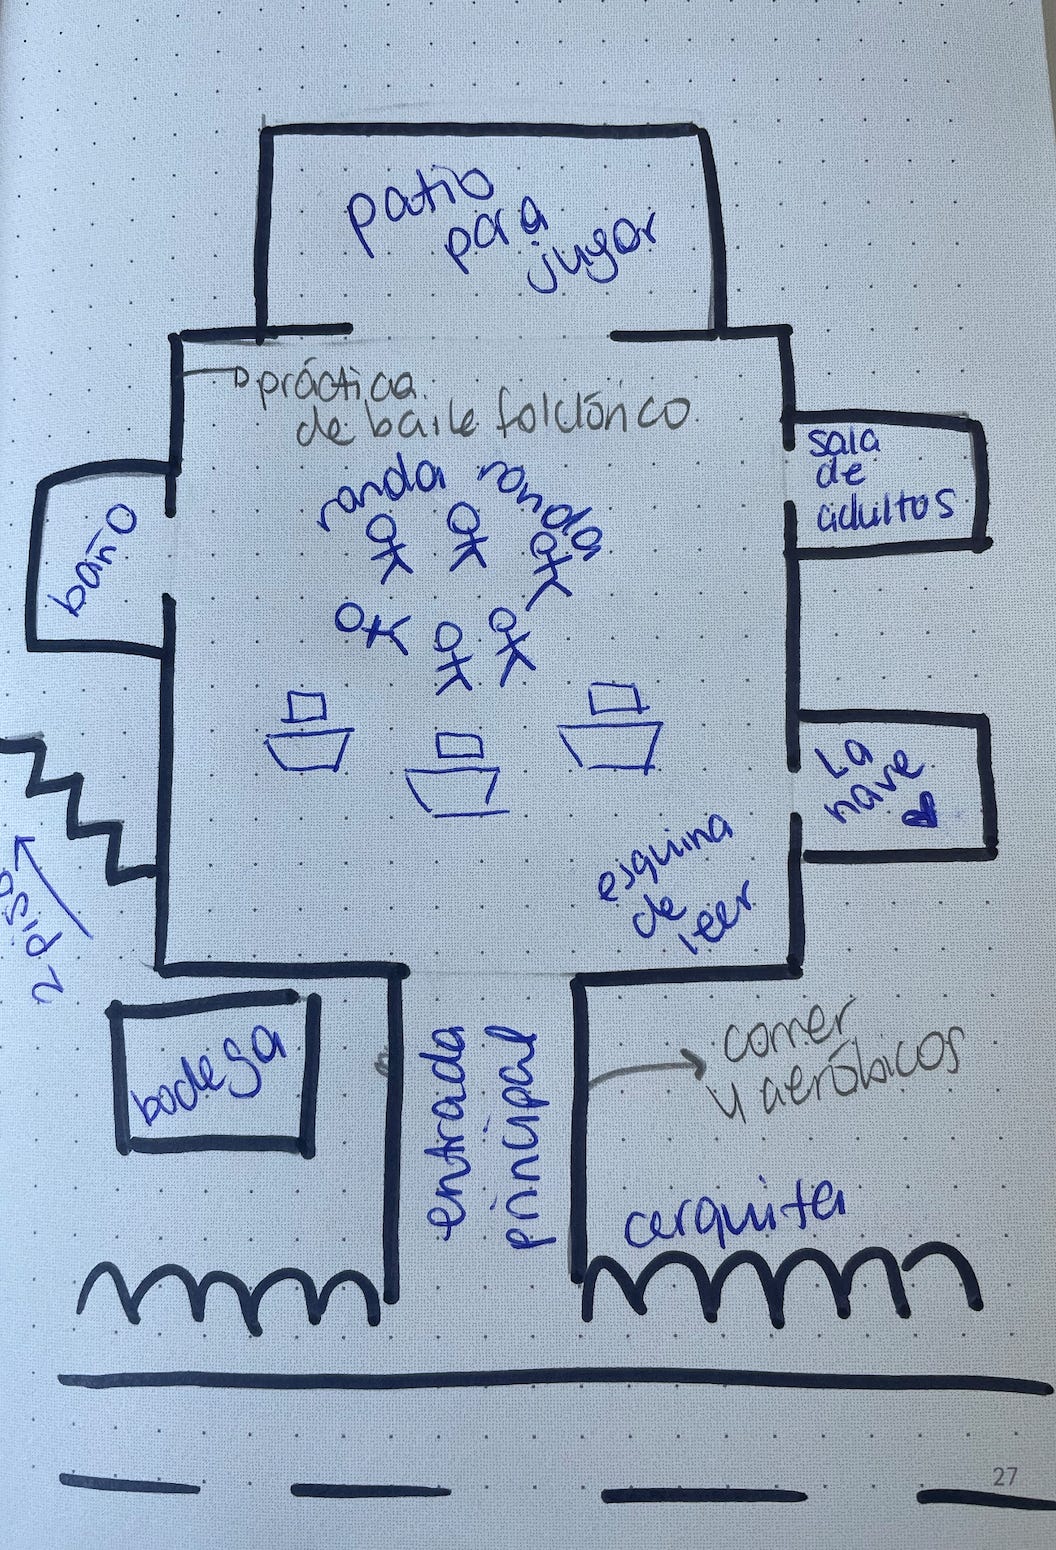 patio
para
jugar
práctica
de baile folclórico
ronda ronda
sala
de
adultos
baño
La
nave
esquina
de
leer
2 piso
bodega
entrada
principal
comer
y aeróbicos
cerquita
27